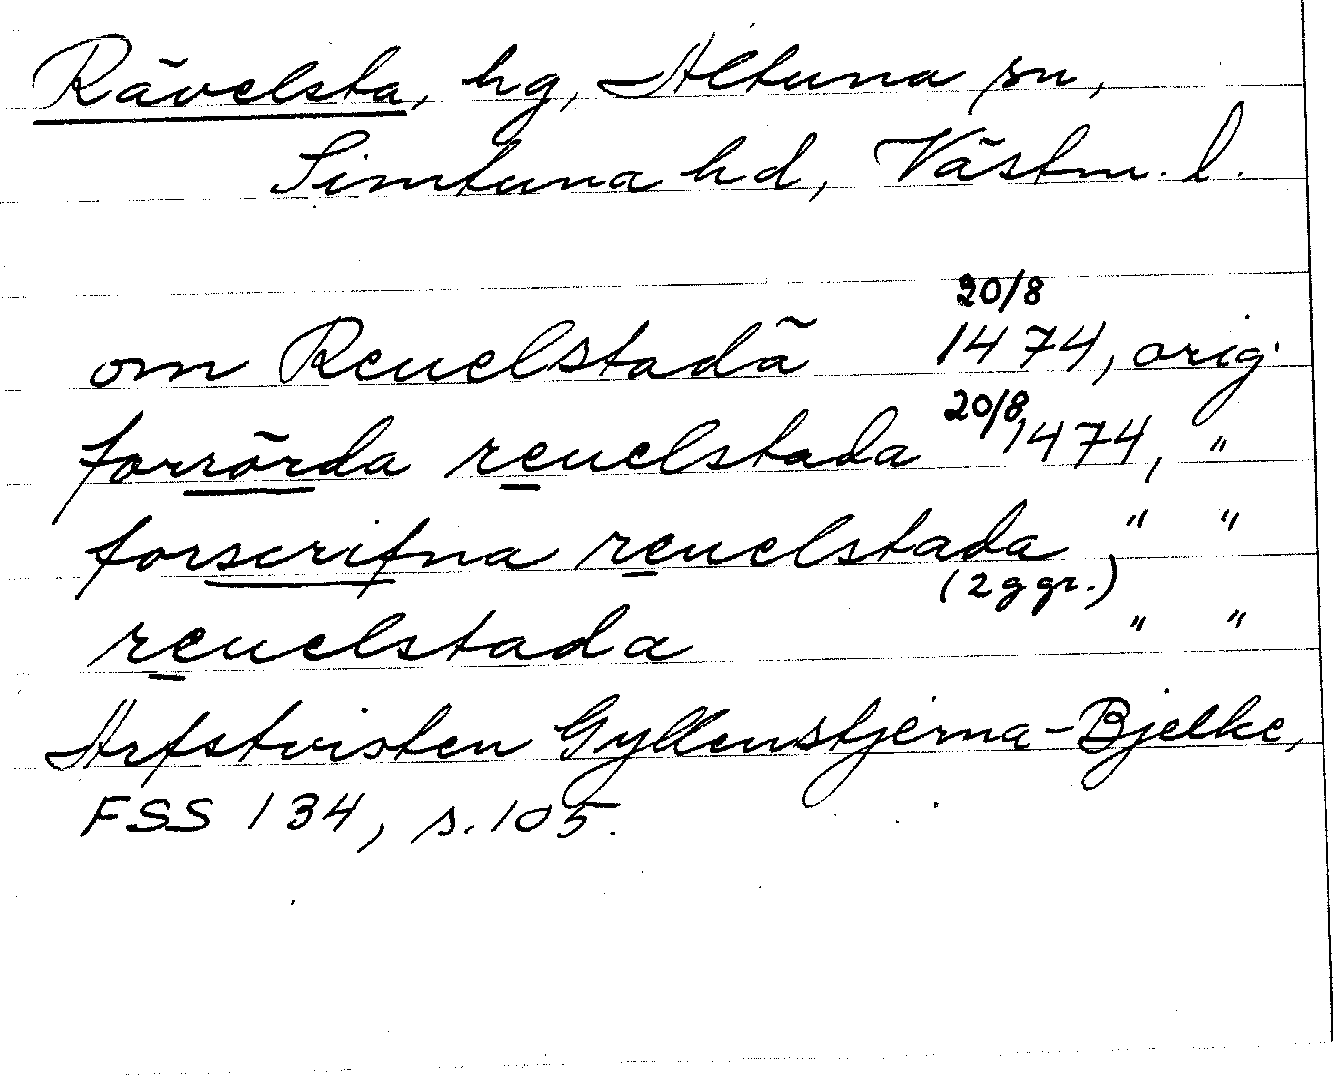 Rävelsta, hg, Altuna sn,
Simtuna hd, Västm. l.
20/8
om Reuelstadä 1474, orig.
forrörda reuelstada 20/8 1474, "
forscrifna reuelstada, " "
(2 ggr.)
reuelstada " "
Arfstvisten Gyllenstjerna-Bjelke,
FSS 134, s. 105.